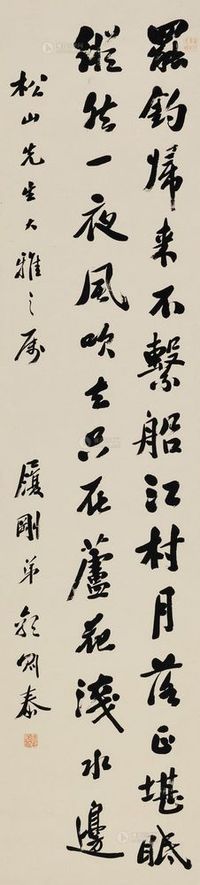 罷釣歸来不繫船江村月落正堪眠
縱然一夜風吹去只在蘆花淺水邊
松山先生大雅之属
履剛弟彭則泰